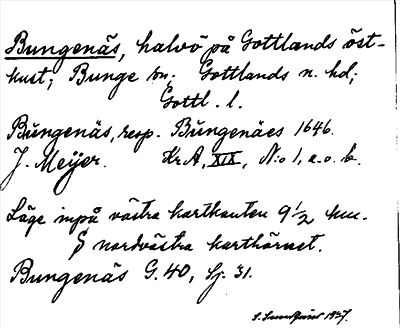 Bungenäs, halvö på Gottlands öst-
kust; Bunge sn; Gottlands n. hd;
Gottl. l.
Bŭngenäs, resp. Bŭngenäes 1646.
J. Meijer. Kr A, XIX, N:o 1, a.o. b.
Läge inpå västra kartkanten 9 1/2 km.
nordvästra karthörnet.
Bungenäs G. 40, Sj. 31.
1927.